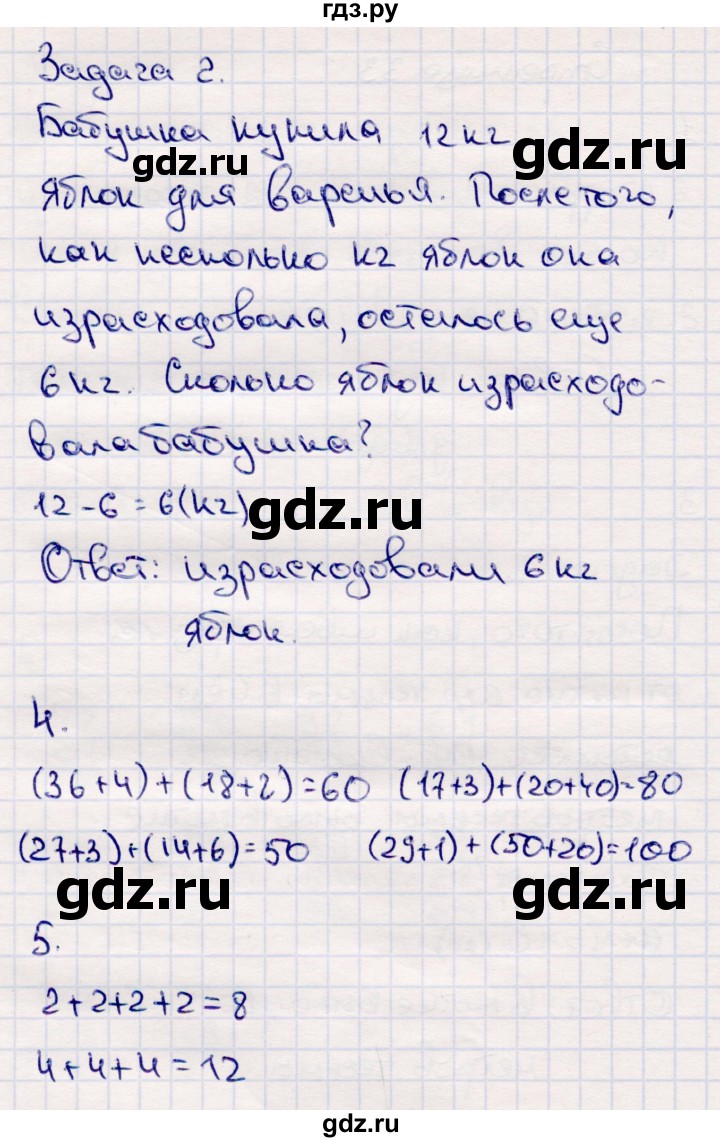 гдз.ру
Задача 2.
Бабушка купила 12 кг
gdz.ru
gdz.ru
яблок для варенья. После того,
как несколько кг яблок она
израсходовала, осталось еще
6 кг. Сколько яблок израсходо-
вала бабушка?
12 - 6 = 6 (кг)
gdz.ru
Ответ: израсходовали 6 кг
яблок.
4.
(36+4)+(18+2)=60 (17+3)+(20+40)=80
(27+3)+(14+6)=50 (29+1)+(50+20)=100
gdz.ru
gdz.ru
5.
2+2+2+2=8
4+4+4=12
gdz.ru